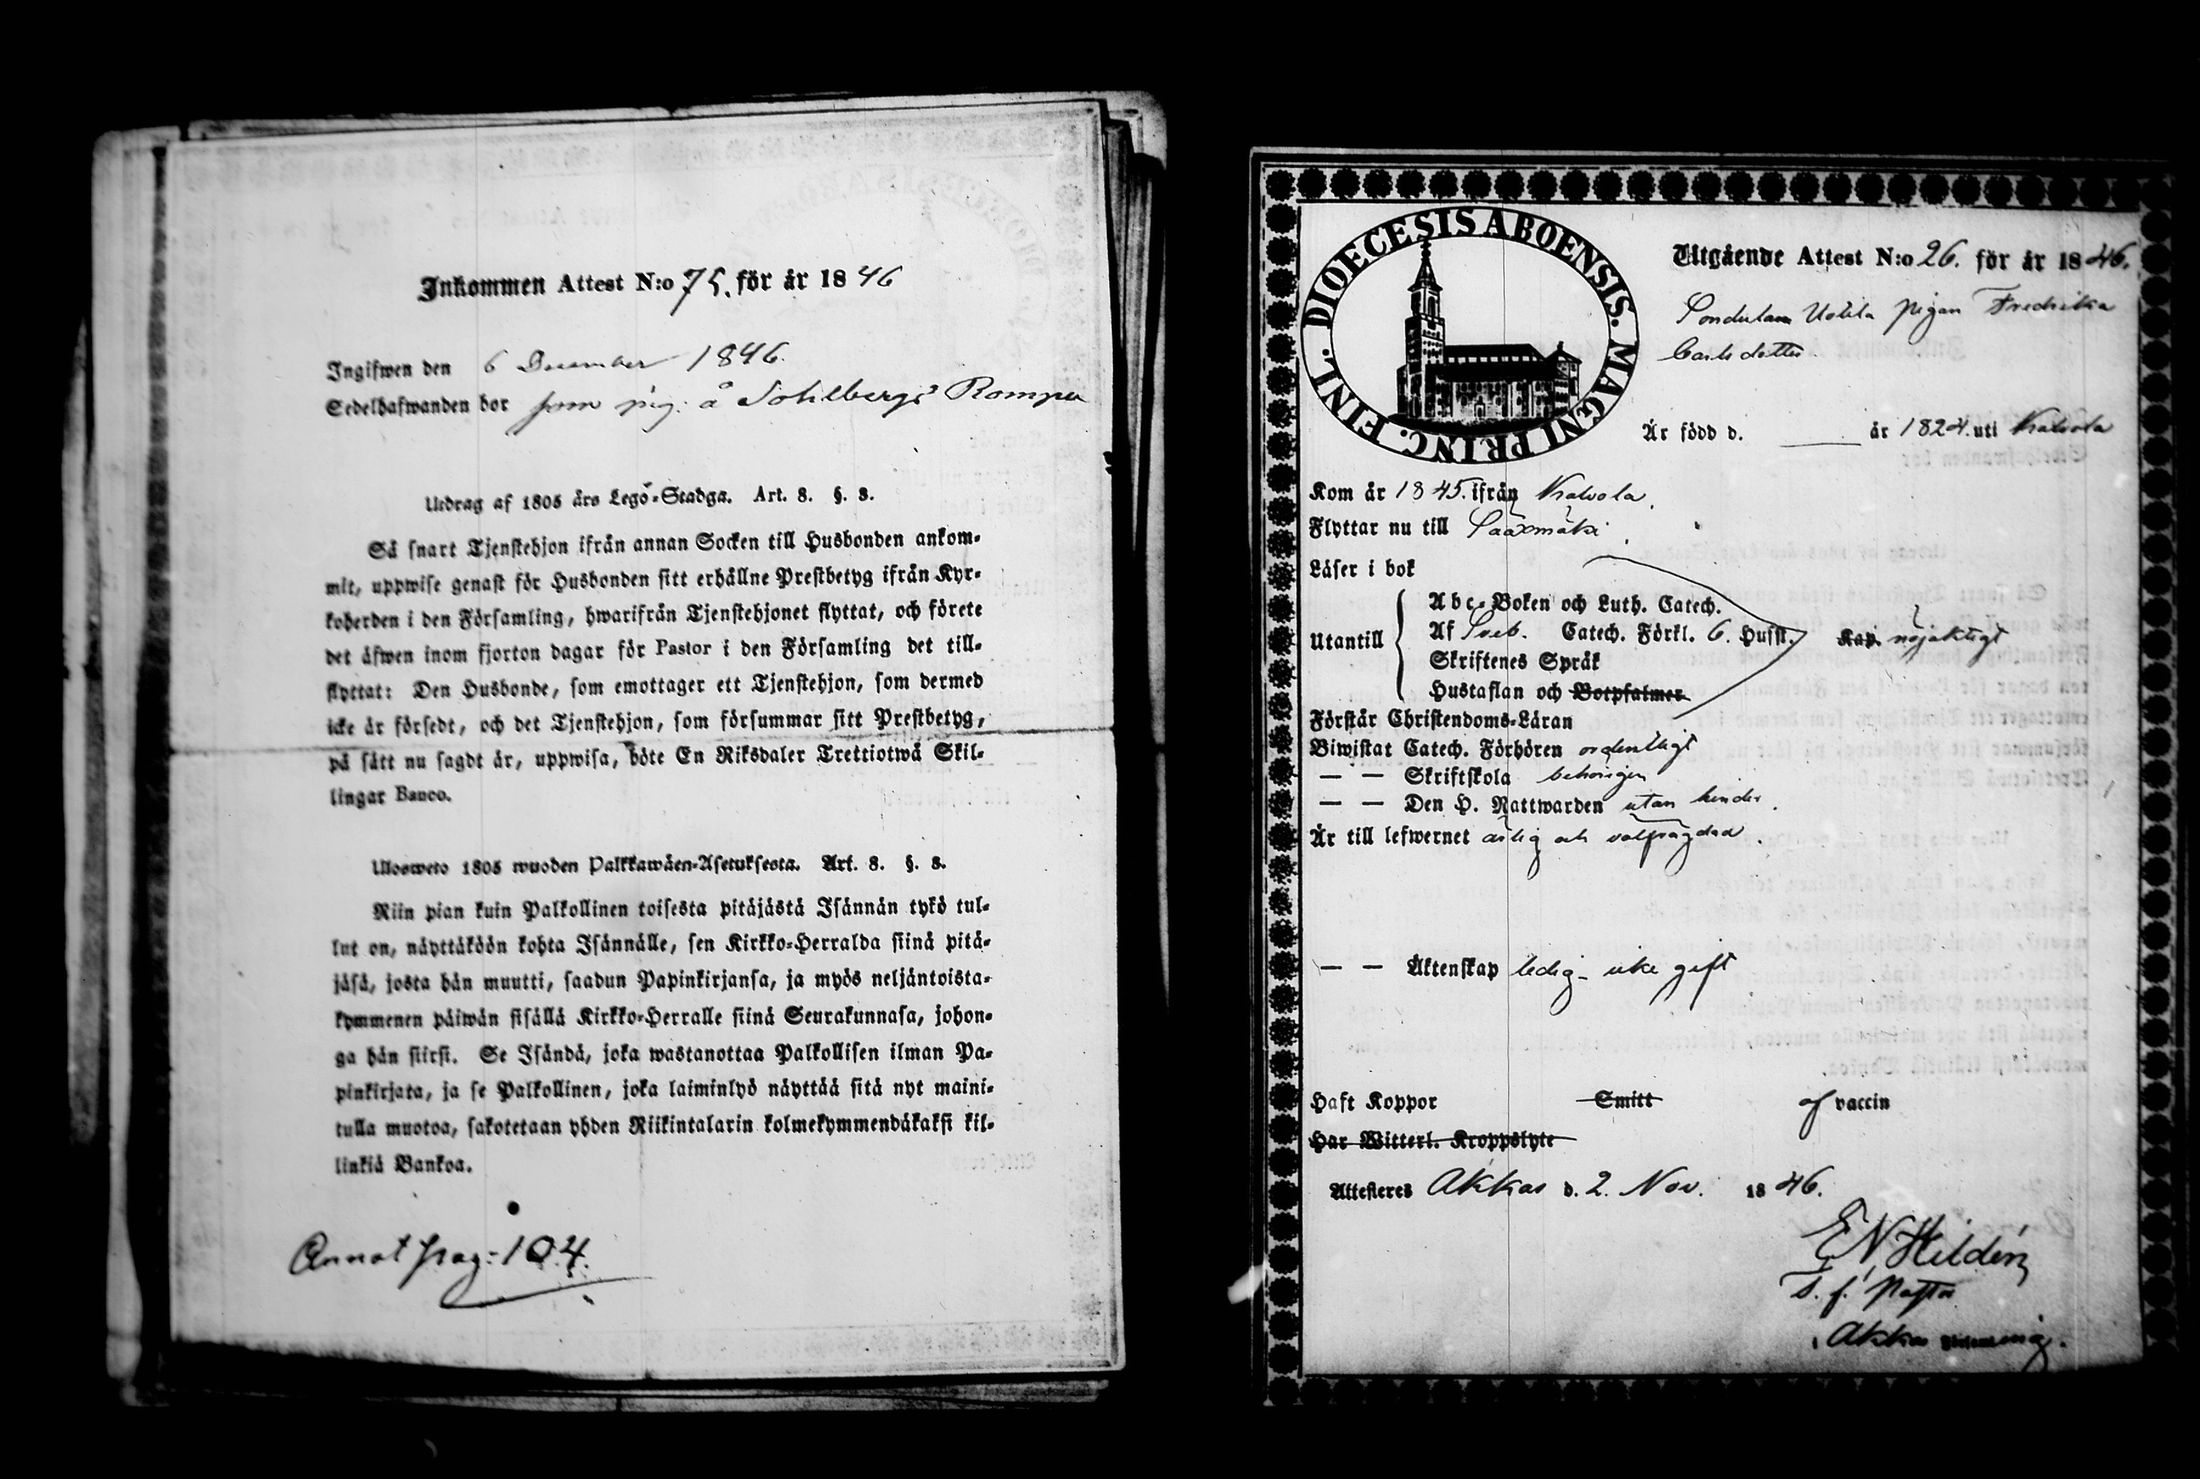 Inkommen Attest N:o 75. för år 1846
Ingifwen den 6 December 1846.
Sedelhafwanden bor som pig. å Sohlbergs Rompa
Utdrag af 1805 års Lego-Stadga. Art. 8. §. 8.
Så snart Tjenstehjon ifrån annan Socken till Husbonden ankom-
mit, uppwise genast för Husbonden sitt erhållne Prestbetyg ifrån Kyr-
koherden i den Församling, hwarifrån Tjenstehjonet flyttat, och förete
det äfwen inom fjorton dagar för Pastor i den Församling det till-
flyttat: Den Husbonde, som emottager ett Tjenstehjon, som dermed
icke är försedt, och det Tjenstehjon, som försummar sitt Prestbetyg,
på sätt nu sagdt är, uppwisa, böte En Riksdaler Trettiotwå Skil-
lingar Banco.
Ulosweto 1805 wuoden Palkkawäen-Asetuksesta. Art. 8. §. 8.
Niin pian kuin Palkollinen toisesta pitäjästä Isännän tykö tul-
lut on, näyttäköön kohta Isännälle, sen Kirkko-Herralda siinä pitä-
jäsä, josta hän muutti, saadun Papinkirjansa, ja myös neljäntoista-
kymmenen päiwän sisällä Kirkko-Herralle siinä Seurakunnasa, johon-
ga hän siirsi. Se Isändä, joka wastanottaa Palkollisen ilman Pa-
pinkirjata, ja se Palkollinen, joka laiminlyö näyttää sitä nyt maini-
tulla muotoa, sakotetaan yhden Riikintalarin kolmekymmendäkaksi kil-
linkiä Bankoa.
Annot pag: 104.
DIOECESIS ABOENSIS. MAGNI PRINC. FINL.
Utgående Attest N:o 26. för år 1846.
pigan Fredrika
Carlsdotter.
Är född d. år 1824. uti Kalvola
Kom år 1845. ifrån Kalvola.
Flyttar nu till Sääxmäki.
Läser i bok
Utantill
Abc-Boken och Luth. Catech.
Af Sveb. Catech. Förkl. 6. Husst. Kap. nöjaktigt
Skriftenes Språk
Hustaflan och Botpsalmer
Förstår Christendoms-Läran
Biwistat Catech. Förhören ordentligt
— — Skriftskola behörigen
— — Den H. Nattwarden utan hinder.
Är till lefwernet ärlig och välfrägdad.
— — Äktenskap ledig - icke gift
Haft Koppor Smitt af vaccin
Har Witterl. Kroppslyte
Attesteres Akkas d. 2. Nov. 1846.
E N Hildén
T. f. Pastor
i Akkas Församling.